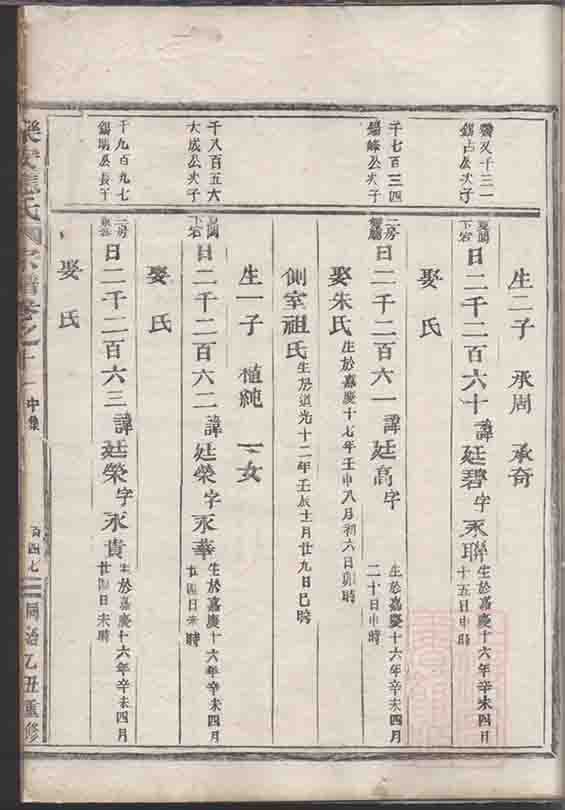 錫占公次子
生二子 承周 承奇
曰二千二百六十諱廷碧字永聯 生於嘉慶十六年辛未四月
十五日申時
娶氏
千七百三四
錫峰公次子
二房
曰二千二百六一諱廷高字 生於嘉慶十六年辛未四月
二十日申時
娶朱氏 生於嘉慶十七年壬申八月初六日卯時
側室祖氏 生於道光十二年壬辰十月廿九日巳時
生一子 植純 一女
千八百五六
大成公次子
下宕
曰二千二百六二諱廷榮字永華 生於嘉慶十六年辛未四月
廿四日未時
娶氏
千九百九七
錫明公長子
二房
曰二千二百六三諱廷榮字永貴 生於嘉慶十六年辛未四月
廿四日未時
娶氏
宗譜卷之十一 中集
百四七
同治乙丑重修